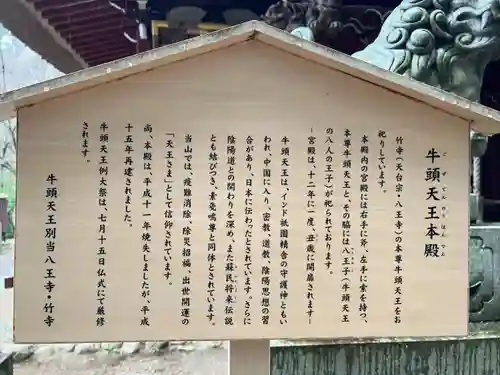 牛頭天王本殿
ごずてんのうほんでん
竹寺（天台宗・八王寺）の本尊牛頭天王をお
祀りしています。
本殿内の宮殿には右手に斧、左手に索を持つ、
本尊牛頭天王と、その脇には八王子（牛頭天王
の八人の王子）が祀られております。
―宮殿は、十二年に一度、丑歳に開扉されます―
牛頭天王は、インド祇園精舎の守護神ともい
われ、中国に入り、密教、道教、陰陽思想の習
合があり、日本に伝わったとされています。さらに
陰陽道との関わりを深め、また蘇民将来伝説
とも結びつき、素戔嗚尊と同体とされています。
当山では、疫難消除、除災招福、出世開運の
「天王さま」として信仰されています。
尚、本殿は、平成十一年焼失しましたが、平成
十五年再建されました。
牛頭天王例大祭は、七月十五日仏式にて厳修
されます。
牛頭天王別当八王寺・竹寺